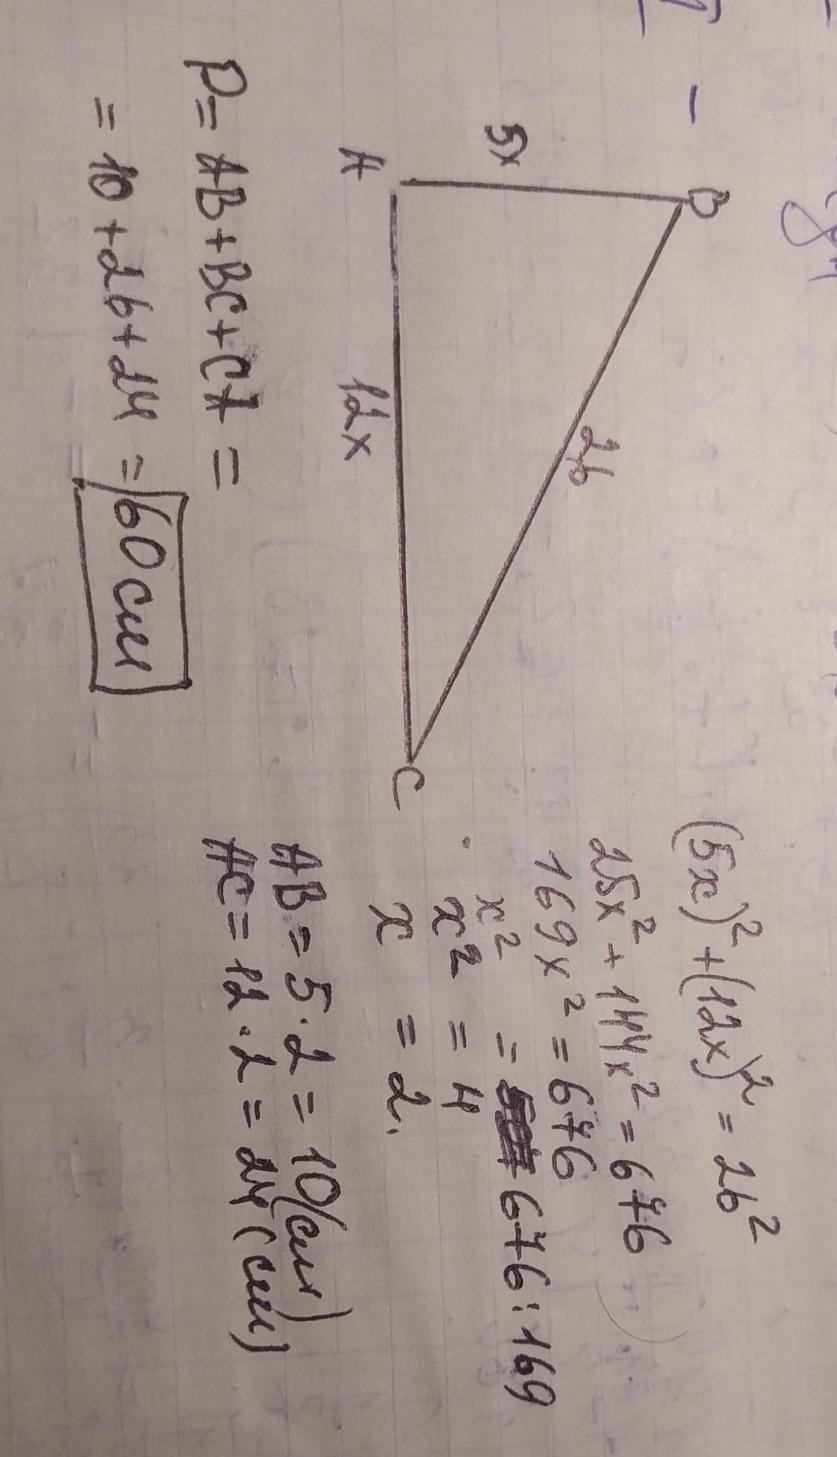 B
5x
26
A
12x
C
P = AB + BC + CA =
= 10 + 26 + 24 = 60 см
(5x)² + (12x)² = 26²
25x² + 144x² = 676
169x² = 676
x² = 676 : 169
x² = 4
x = 2.
AB = 5 · 2 = 10 (см)
AC = 12 · 2 = 24 (см)